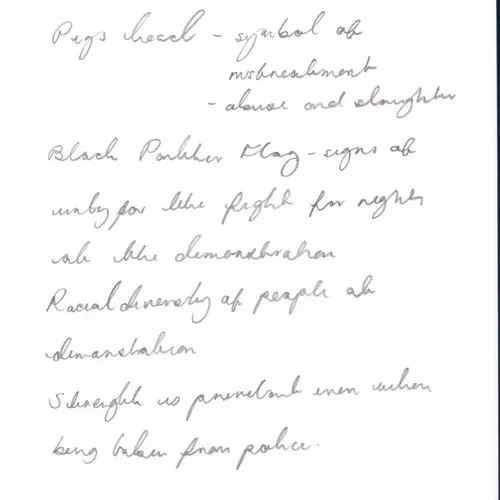 Pigs head - symbol of
mistreatment
- abuse and slaughter
Black Panther Flag - signs of
unity for the fight for rights
at the demonstration
Racial diversity of people at
demonstration
Strength is prevelant even when
being taken from police.